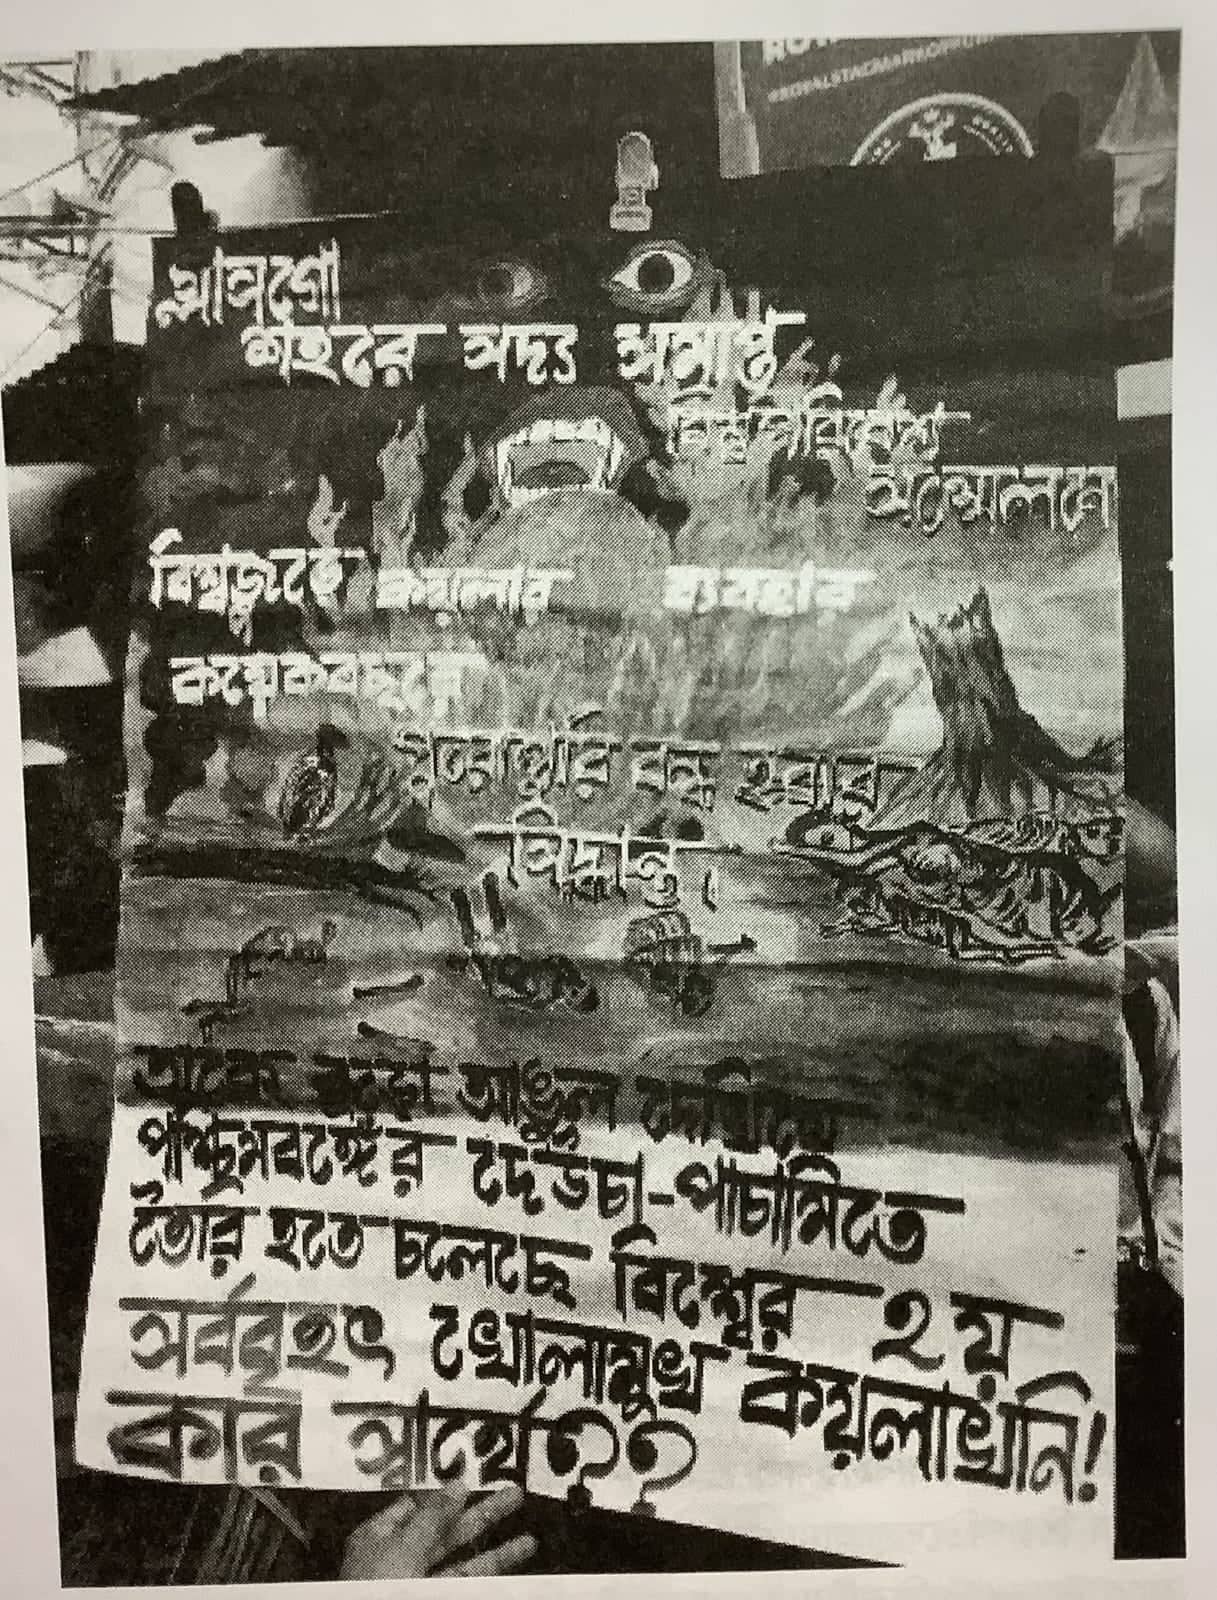 #ROYALSTAG
গ্লাসগো
শহরে সদ্য সমাপ্ত
বিশ্ব পরিবেশ
সম্মেলনে
বিশ্বজুড়ে কয়লার ব্যবহার
কয়েকবছরে
পুরোপুরি বন্ধ হবার
সিদ্ধান্ত।
তাকে বুড়ো আঙুল দেখিয়ে
পশ্চিমবঙ্গের দেউচা-পাচামিতে
তৈরি হতে চলেছে বিশ্বের ২য়
সর্ববৃহৎ খোলামুখ কয়লাখনি!
কার স্বার্থে??